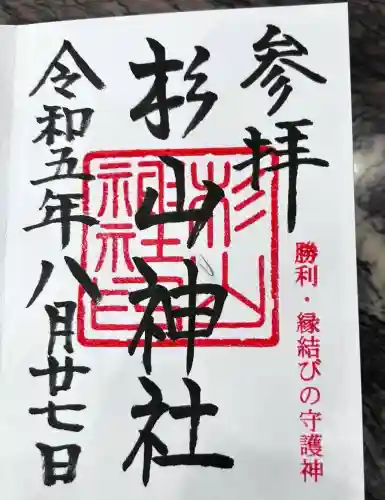 参拝
勝利・縁結びの守護神
杉山神社
杉山
神社
令和五年八月廿七日